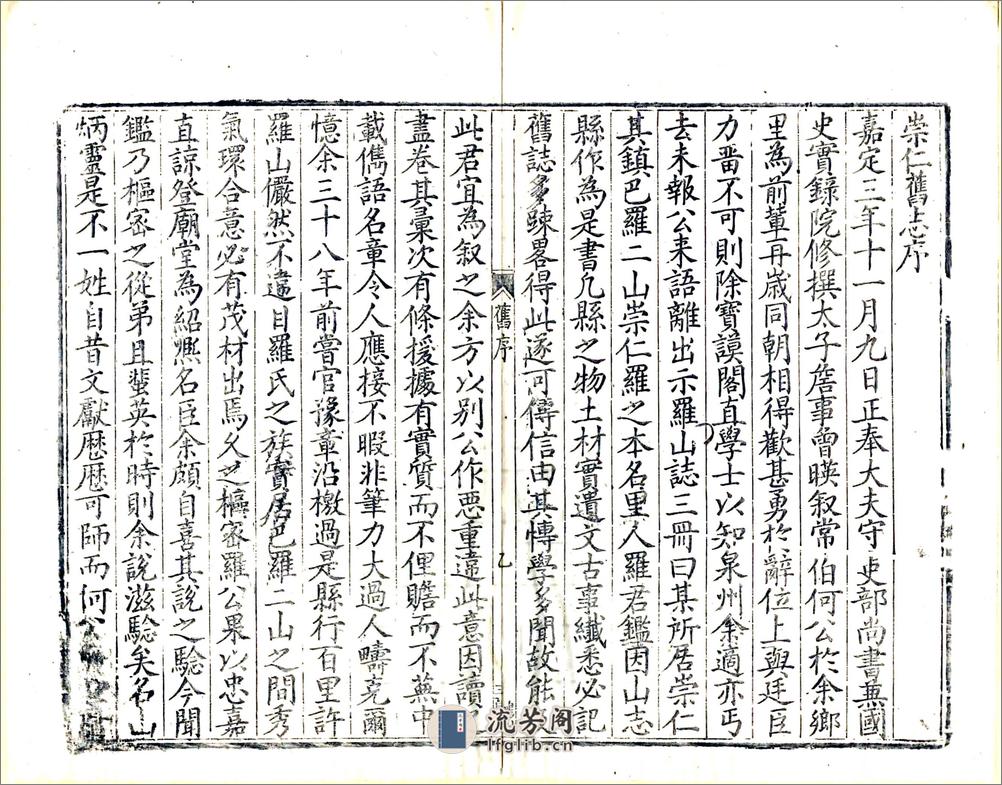 崇仁舊志序
嘉定三年十一月九日正奉大夫守吏部尚書兼國
史實錄院修撰太子詹事曾暎叙常伯何公於余鄉
里為前輩再歲同朝相得歡甚勇於辭位上與廷臣
力畱不可則除寶謨閣直學士以知泉州余適亦丐
去未報公来語離出示羅山誌三冊曰某所居崇仁
其鎮巴羅二山崇仁羅之本名里人羅君鑑因山志
縣作為是書凡縣之物土材實遺文古事纎悉必記
舊誌多踈畧得此遂可傳信由其愽學多聞故能
舊序
乙
此君宜為叙之余方以别公作惡重違此意因讀
盡卷其彙次有條援據有實質而不俚贍而不蕪中
載儁語名章令人應接不暇非筆力大過人疇克爾
憶余三十八年前嘗官豫章沿檄過是縣行百里許
羅山儼然不違目羅氏之族實居巴羅二山之間秀
氣環合意必有茂材出焉久之樞密羅公果以忠嘉
直諒登廟堂為紹熈名臣余頗自喜其說之騐今聞
鑑乃樞密之從弟且蜚英於時則余說滋騐矣名山
炳靈是不一姓自昔文獻歷歷可師而何公
流芳阁
lfglib.cn